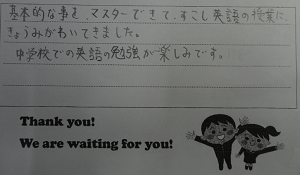 基本的な事を、マスターできて、すこし英語の授業に、
きょうみがわいてきました。
中学校での英語の勉強が楽しみです。
Thank you!
We are waiting for you!